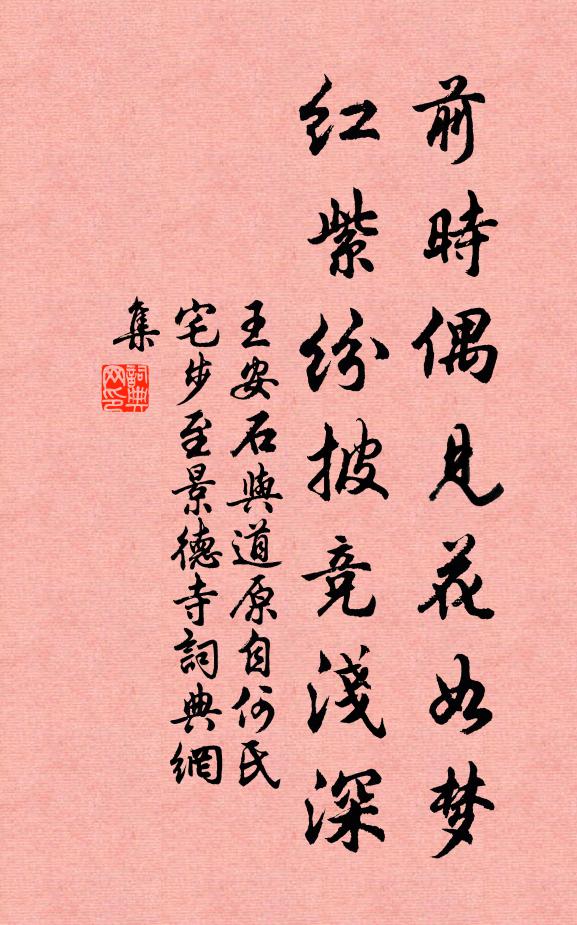 前時偶見花如梦
红紫紛披竞淺深
王安石與道原自何氏
宅步至景德寺詞典網
集
詞典網印